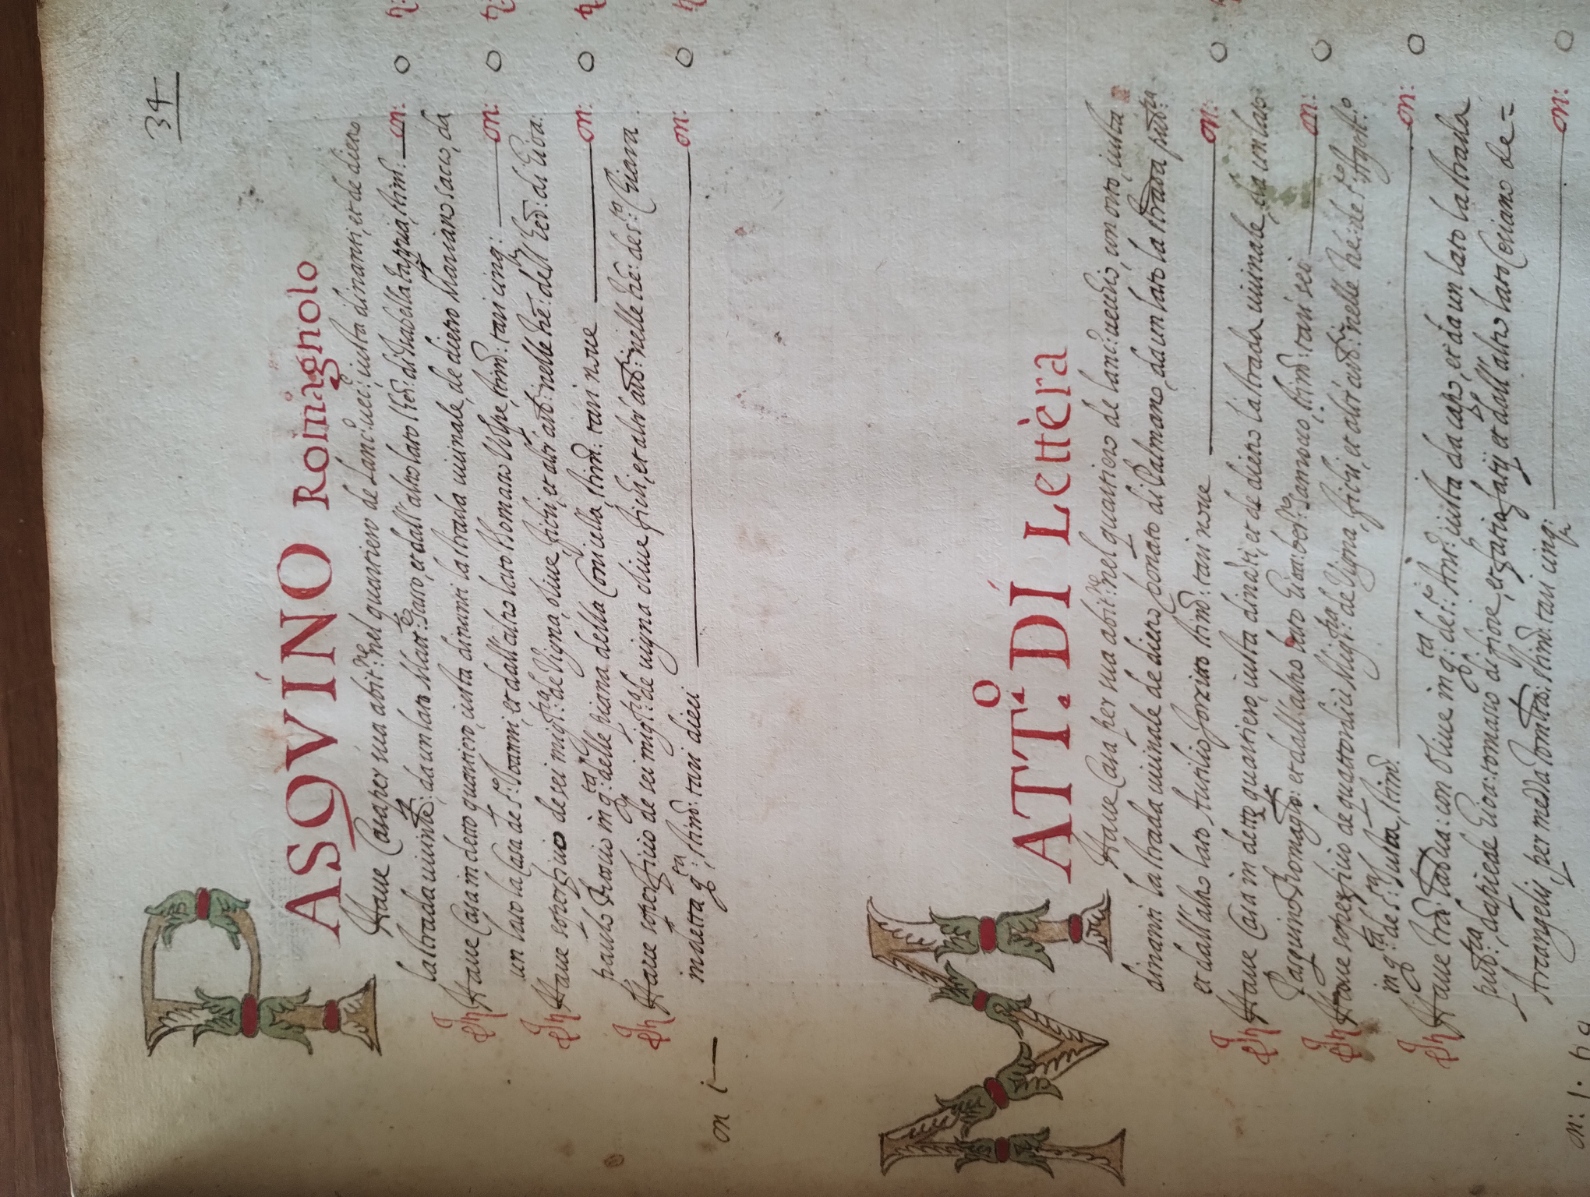 34
PASQVINO Romagnolo
Haue Casa per sua abit.ne nel quartiero de Lanc.o vec.o, iusta dinanti, et de dietro
la strada uicin.le, da un lato Matt.o Sasso, et dall'altro lato l'her: di Isabella tappia, stim: on: 0
Haue Casa in detto quartiero, iusta dinanti la strada uicinale, de dietro Mariano sacco, da
un lato la Casa de S.to Ioanni, et dall'altro lato Thomaso Volpe, stim: tari cinq: on: 0
Haue soperficio de sei migl.ra de Vigna, oliue, fichi, et altr'arb.i nelle tre: dell'hed: di Gioa:
paulo in q.ta delle piana della Conicella, stim: tari noue on: 0
Haue soperficio de sei migl.ra de vigna oliue fichi, et altr'arb.i nelle tre: de s.ta Chiara
in detta q.ta, stim: tari dieci on: 0
on i—
MATT.o DÍ Lettèra
Haue Casa per sua abit.ne nel quartiero de lanc.o uecchio, con orto, iusta
dinanti la strada uicinale de dietro Donato di Palmano, da un lato la strada pub.ca
et dall'altro lato Autilio stim: tari noue on: 0
Haue Casa in detto quartiero, iusta dinãti, et de dietro la strada uicinale, da un lato
Pasquino Romagn.lo: et dall'altro lato Gioa: ber.no Sanrocco, stim: tari sei on: 0
Haue soperficio de quattordici Migl.ra de Vigna, fichi, et altr'arb.i nelle tre: de s.to Agost.o
in q.ta de s.ta Iusta, stim: on: 0
Haue tra: lab.ua: con Oliue in q.ta de s.to Ant.o iusta da capo, et da un lato la strada
pub.ca, da piede Gioa: tomaso di fiore, et fatio fatij et dall'altro lato Cesiano de=
Arcangelis, per mezza tom.ta: stim: tari cinq: on: 0
on: 1.